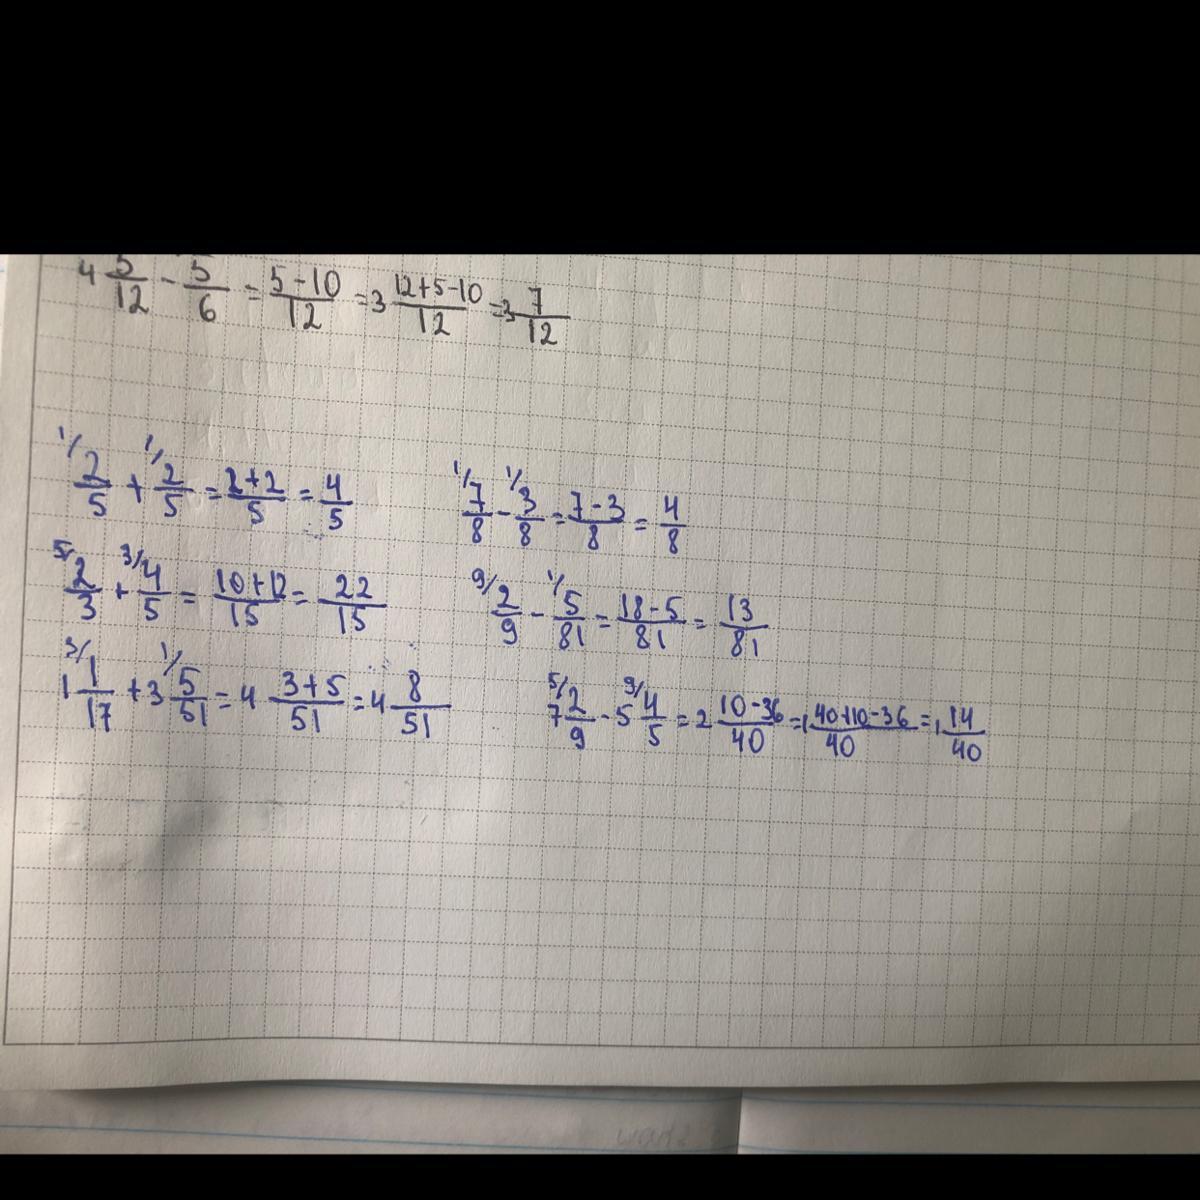 4 5/12 - 5/6 = 5-10/12 = 3 12+5-10/12 = 3 7/12
1/ 2/5 + 1/ 2/5 = 2+2/5 = 4/5
1/ 7/8 - 1/ 3/8 = 7-3/8 = 4/8
5/ 2/3 + 3/ 4/5 = 10+12/15 = 22/15
9/ 2/9 - 1/ 5/81 = 18-5/81 = 13/81
3/ 1 1/17 + 1/ 3 5/51 = 4 3+5/51 = 4 8/51
5/ 7 2/9 - 9/ 5 4/5 = 2 10-36/40 = 1 40+10-36/40 = 1 14/40